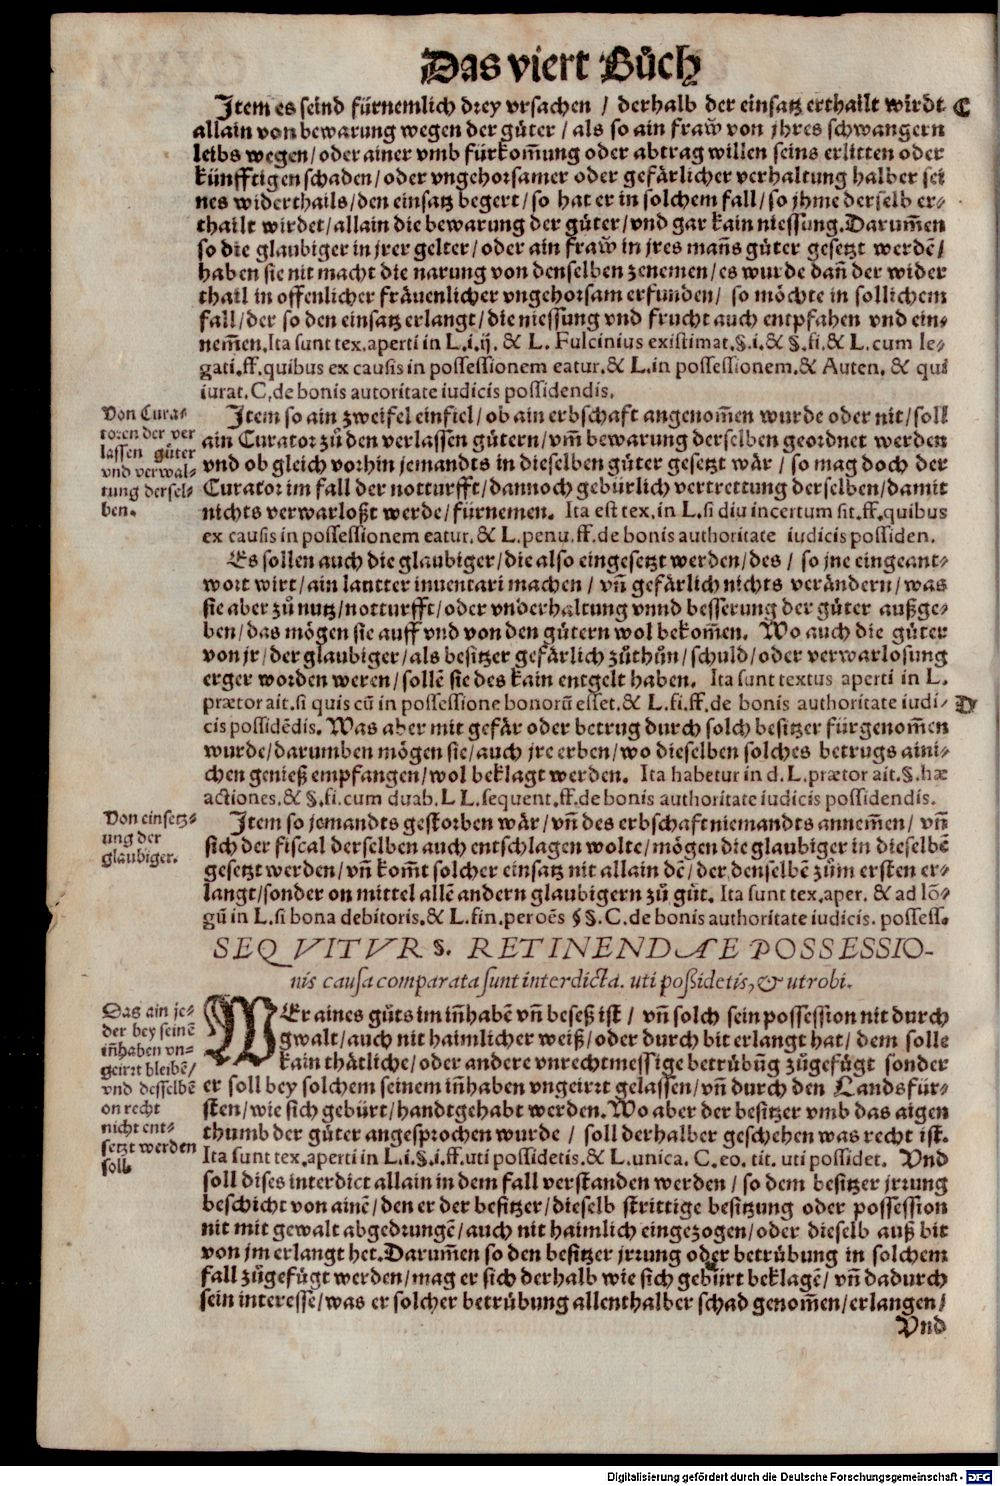 Das viert Bůch
Item es seind fürnemlich drey vrsachen / derhalb der einsatz erthailt wirdt C
allain von bewarung wegen der güter / als so ain fraw von jhres schwangern
leibs wegen / oder ainer vmb fürkom̄ung oder abtrag willen seins erlitten oder
künfftigen schaden / oder vngehorsamer oder gefärlicher verhaltung halber sei
nes widerthails / den einsatz begert / so hat er in solchem fall / so jhme derselb er-
thailt wirdet / allain die bewarung der güter / vnd gar kain niessung. Darum̄en
so die glaubiger in jrer gelter / oder ain fraw in jres mañs güter gesetzt werdē /
haben sie nit macht die narung von denselben zenemen / es wurde dañ der wider
thail in offenlicher fräuenlicher vngehorsam erfunden / so möchte in sollichem
fall / der so den einsatz erlangt / die niessung vnd frucht auch entpfahen vnd ein-
nem̄en. Ita sunt tex. aperti in L. i. ij. & L. Fulcinius existimat. §. i. & §. fi. & L. cum le-
gati. ff. quibus ex causis in possessionem eatur. & L. in possessionem. & Auten. & qui
iurat. C. de bonis autoritate iudicis possidendis.
Von Cura-
toren der ver
lassen güter
vnd verwal-
tung dersel-
ben.
Item so ain zweifel einfiel / ob ain erbschaft angenom̄en wurde oder nit / soll
ain Curator zů den verlassen gütern / vm̄ bewarung derselben geordnet werden
vnd ob gleich vorhin jemandts in dieselben güter gesetzt wär / so mag doch der
Curator im fall der notturfft / dannoch gebürlich vertrettung derselben / damit
nichts verwarloßt werde / fürnemen. Ita est tex. in L. si diu incertum sit. ff. quibus
ex causis in possessionem eatur. & L. penu. ff. de bonis authoritate iudicis possiden.
Es sollen auch die glaubiger / die also eingesetzt werden / des / so jne eingeant-
wort wirt / ain lautter inuentari machen / vñ gefärlich nichts verändern / was
sie aber zů nutz / notturfft / oder vnderhaltung vnnd besserung der güter außge-
ben / das mögen sie auff vnd von den gütern wol bekom̄en. Wo auch die güter
von jr / der glaubiger / als besitzer gefärlich zůthůn / schuld / oder verwarlosung
erger worden weren / sollē sie des kain entgelt haben. Ita sunt textus aperti in L.
prætor ait. si quis cū in possessione bonorū esset. & L. fi. ff. de bonis authoritate iudi- D
cis possidēdis. Was aber mit gefär oder betrug durch solch besitzer fürgenom̄en
wurde / darumben mögen sie / auch jre erben / wo dieselben solches betrugs aini-
chen genieß empfangen / wol beklagt werden. Ita habetur in d. L. prætor ait. §. hæ
actiones. & §. fi. cum duab. L L. sequent. ff. de bonis authoritate iudicis possidendis.
Von einsetz-
ung der
glaubiger.
Item so jemandts gestorben wär / vñ des erbschaft niemandts annem̄en / vñ
sich der fiscal derselben auch entschlagen wolte / mögen die glaubiger in dieselbē
gesetzt werden / vñ kom̄t solcher einsatz nit allain dē / der denselbē zům ersten er-
langt / sonder on mittel allē andern glaubigern zů gůt. Ita sunt tex. aper. & ad lō-
gū in L. si bona debitoris. & L. fin. per oēs §§. C. de bonis authoritate iudicis. possess.
SEQVITVR §. RETINENDAE POSSESSIO-
nis causa comparata sunt interdicta. uti possidetis, & utrobi.
Das ain je-
der bey seinē
iñhaben vn-
geirrt bleibē /
vnd desselbē
on recht
nicht ent-
setzt werden
soll.
WEr aines gůts im iñhabē vñ beseß ist / vñ solch sein possession nit durch
gwalt / auch nit haimlicher weiß / oder durch bit erlangt hat / dem solle
kain thätliche / oder andere vnrechtmessige betrübūg zůgefügt sonder
er soll bey solchem seinem iñhaben vngeirrt gelassen / vñ durch den Landsfür-
sten / wie sich gebürt / handtgehabt werden. Wo aber der besitzer vmb das aigen
thumb der güter angesprochen wurde / soll derhalber geschehen was recht ist.
Ita sunt tex. aperti in L. i. §. i. ff. uti possidetis. & L. unica. C. eo. tit. uti possidet. Vnd
soll dises interdict allain in dem fall verstanden werden / so dem besitzer jrrung
beschicht von ainē / den er der besitzer / dieselb strittige besitzung oder possession
nit mit gewalt abgedrungē / auch nit haimlich eingezogen / oder dieselb auß bit
von jm erlangt het. Darum̄en so den besitzer jrrung oder betrübung in solchem
fall zůgefügt werden / mag er sich derhalb wie sich gebürt beklagē / vñ dadurch
sein interesse / was er solcher betrübung allenthalber schad genom̄en / erlangen /
Vnd
Digitalisierung gefördert durch die Deutsche Forschungsgemeinschaft - DFG